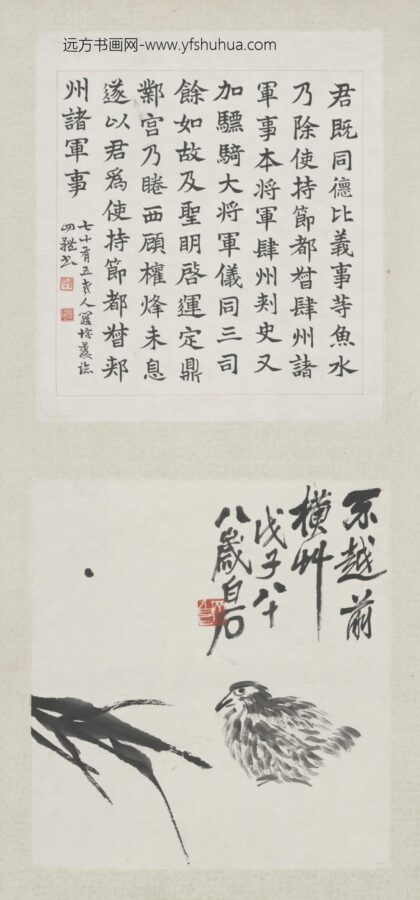 远方书画网-www.yfshuhua.com
君既同德比義事等魚水
乃除使持節都督肆州諸
軍事本将軍肆州刾史又
加驃騎大将軍儀同三司
餘如故及聖明啓運定鼎
鄴宫乃睠西顧權烽未息
遂以君爲使持節都督郟
州諸軍事
七十有五
不越前
横艸
戊子八十
八歲白石